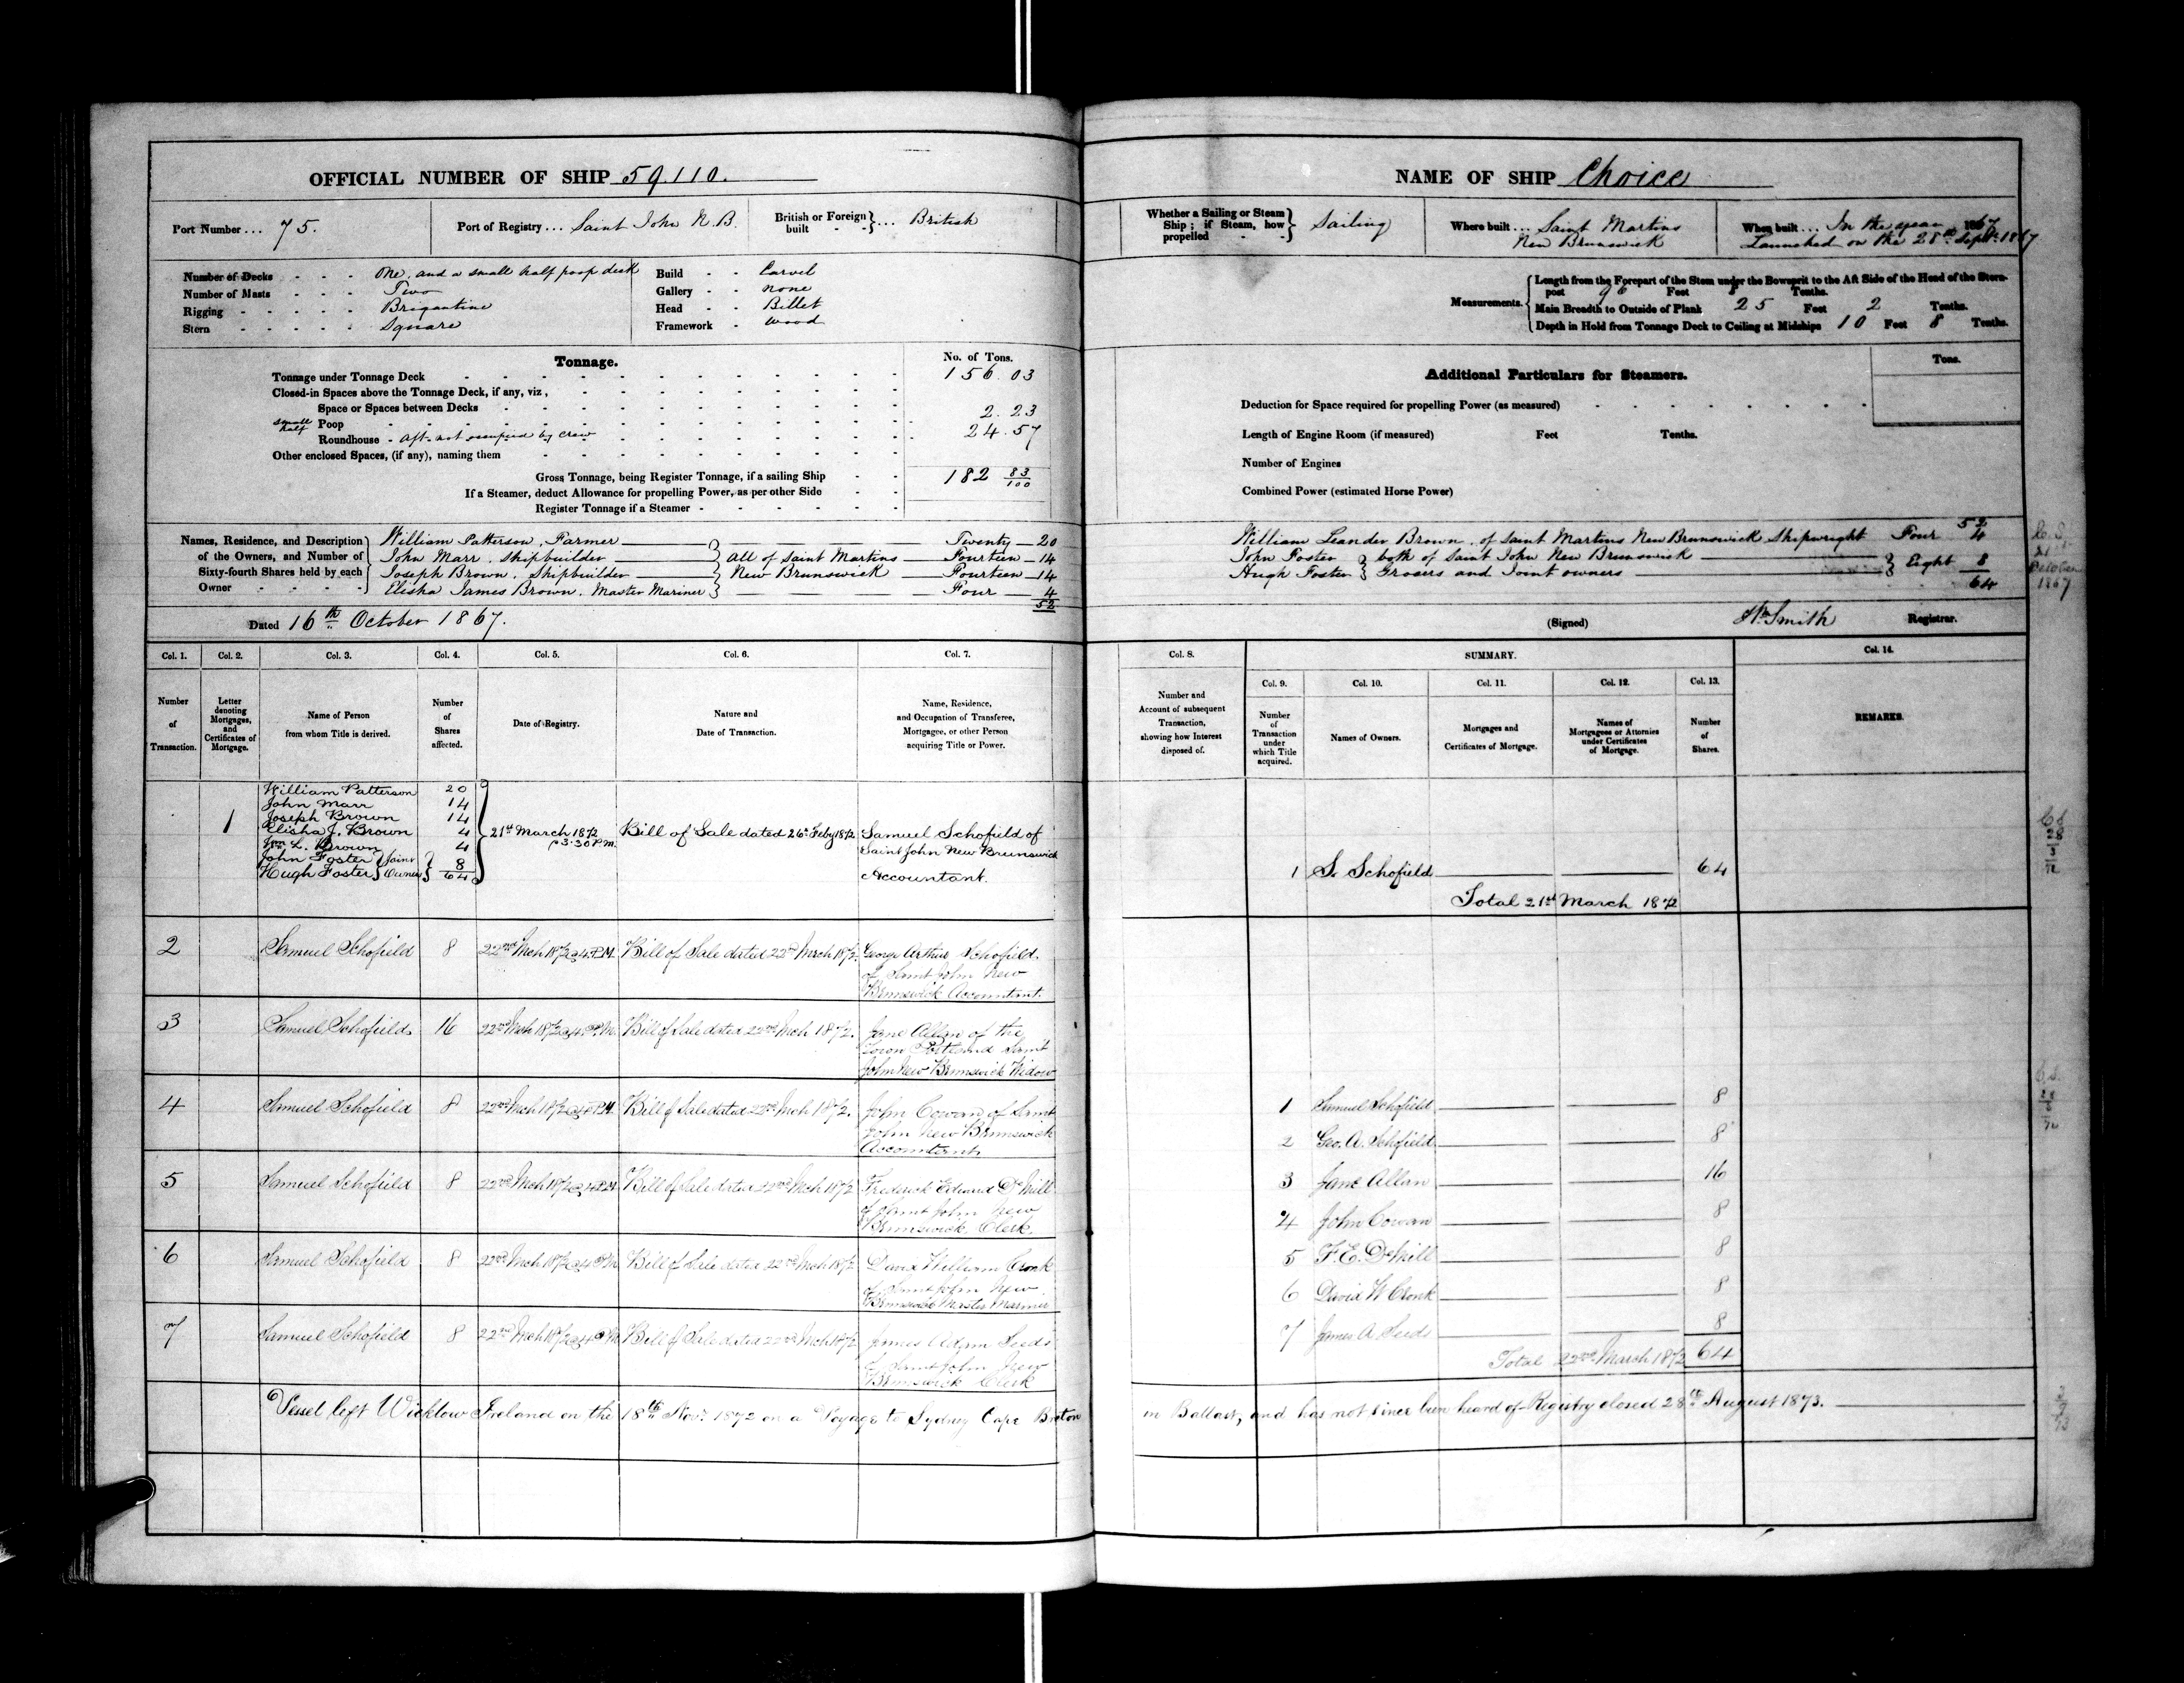 OFFICIAL NUMBER OF SHIP 59.110.
Port Number ... 75.
Port of Registry ... Saint John N.B.
British or Foreign built - - } ... British
Number of Decks - - - One, and a small half poop deck
Number of Masts - - - Two
Rigging - - - - - Brigantine
Stern - - - - - Square
Build - - Carvel
Gallery - - none
Head - - Billet
Framework - wood
Tonnage.
No. of Tons.
Tonnage under Tonnage Deck 156.03
Closed-in Spaces above the Tonnage Deck, if any, viz,
Space or Spaces between Decks
small half Poop 2.23
Roundhouse - aft - not occupied by crew 24.57
Other enclosed Spaces, (if any), naming them
Gross Tonnage, being Register Tonnage, if a sailing Ship - - 182 83/100
If a Steamer, deduct Allowance for propelling Power, as per other Side - -
Register Tonnage if a Steamer - - - - - -
Names, Residence, and Description of the Owners, and Number of Sixty-fourth Shares held by each Owner - - - -
William Patterson, Farmer — Twenty — 20
John Marr, Shipbuilder — } all of Saint Martins — Fourteen — 14
Joseph Brown, Shipbuilder — } New Brunswick — Fourteen — 14
Elisha James Brown, Master Mariner } — Four — 4
52
Dated 16th October 1867.
NAME OF SHIP Choice
Whether a Sailing or Steam Ship; if Steam, how propelled - - } Sailing
Where built ... Saint Martins
New Brunswick
When built ... In the year 1867
Launched on the 28th Sept. 1867
Measurements.
Length from the Forepart of the Stem under the Bowsprit to the Aft Side of the Head of the Stern-
post 96 Feet Tenths.
Main Breadth to Outside of Plank 25 Feet 2 Tenths.
Depth in Hold from Tonnage Deck to Ceiling at Midships 10 Feet 8 Tenths.
Additional Particulars for Steamers.
Tons.
Deduction for Space required for propelling Power (as measured)
Length of Engine Room (if measured) Feet Tenths.
Number of Engines
Combined Power (estimated Horse Power)
52
William Leander Brown, of Saint Martins New Brunswick Shipwright Four 4
John Foster } both of Saint John New Brunswick
Hugh Foster } Grocers and Joint owners — } Eight 8
64
21 October 1867
(Signed) Wm Smith Registrar.
Col. 1. Col. 2. Col. 3. Col. 4. Col. 5. Col. 6. Col. 7.
Number of Transaction.
Letter denoting Mortgages, and Certificates of Mortgage.
Name of Person from whom Title is derived.
Number of Shares affected.
Date of Registry.
Nature and Date of Transaction.
Name, Residence, and Occupation of Transferee, Mortgagee, or other Person acquiring Title or Power.
Col. 8.
Number and Account of subsequent Transaction, showing how Interest disposed of.
SUMMARY.
Col. 9. Col. 10. Col. 11. Col. 12. Col. 13.
Number of Transaction under which Title acquired.
Names of Owners.
Mortgages and Certificates of Mortgage.
Names of Mortgagees or Attornies under Certificates of Mortgage.
Number of Shares.
Col. 14.
REMARKS.
1
William Patterson 20
John Marr 14
Joseph Brown 14
Elisha J. Brown 4
Wm L. Brown 4
John Foster } Joint } 8
Hugh Foster } Owners } 64
21st March 1872 @ 3.30 P.M.
Bill of Sale dated 26th Feby 1872
Samuel Schofield of
Saint John New Brunswick
Accountant.
1 S. Schofield 64
Total 21st March 1872
2 Samuel Schofield 8 22nd Mch 1872 @ 4 P.M. Bill of Sale dated 22nd March 1872. George Arthur Schofield
of Saint John New
Brunswick Accountant.
3 Samuel Schofield 16 22nd Mch 1872 @ 4 P.M. Bill of Sale dated 22nd Mch 1872. Jane Allan of the
Town Portland Saint
John New Brunswick Widow
4 Samuel Schofield 8 22nd Mch 1872 @ 4 P.M. Bill of Sale dated 22nd Mch 1872. John Cowan of Saint
John New Brunswick
Accountant
5 Samuel Schofield 8 22nd Mch 1872 @ 4 P.M. Bill of Sale dated 22nd Mch 1872 Frederick Edward DeMill
of Saint John New
Brunswick. Clerk.
6 Samuel Schofield 8 22nd Mch 1872 @ 4 P.M. Bill of Sale dated 22nd Mch 1872 David William Cronk
of Saint John New
Brunswick Master Mariner
7 Samuel Schofield 8 22nd Mch 1872 @ 4 P.M. Bill of Sale dated 22nd Mch 1872 James Adam Seeds
of Saint John New
Brunswick Clerk
1 Samuel Schofield 8
2 Geo. A. Schofield 8
3 Jane Allan 16
4 John Cowan 8
5 F. E. DeMill 8
6 David W Cronk 8
7 James A Seeds 8
Total 22nd March 1872 64
Vessel left Wicklow Ireland on the 18th Novr. 1872 on a Voyage to Sydney Cape Breton in Ballast, and has not since been heard of - Registry closed 28th August 1873.